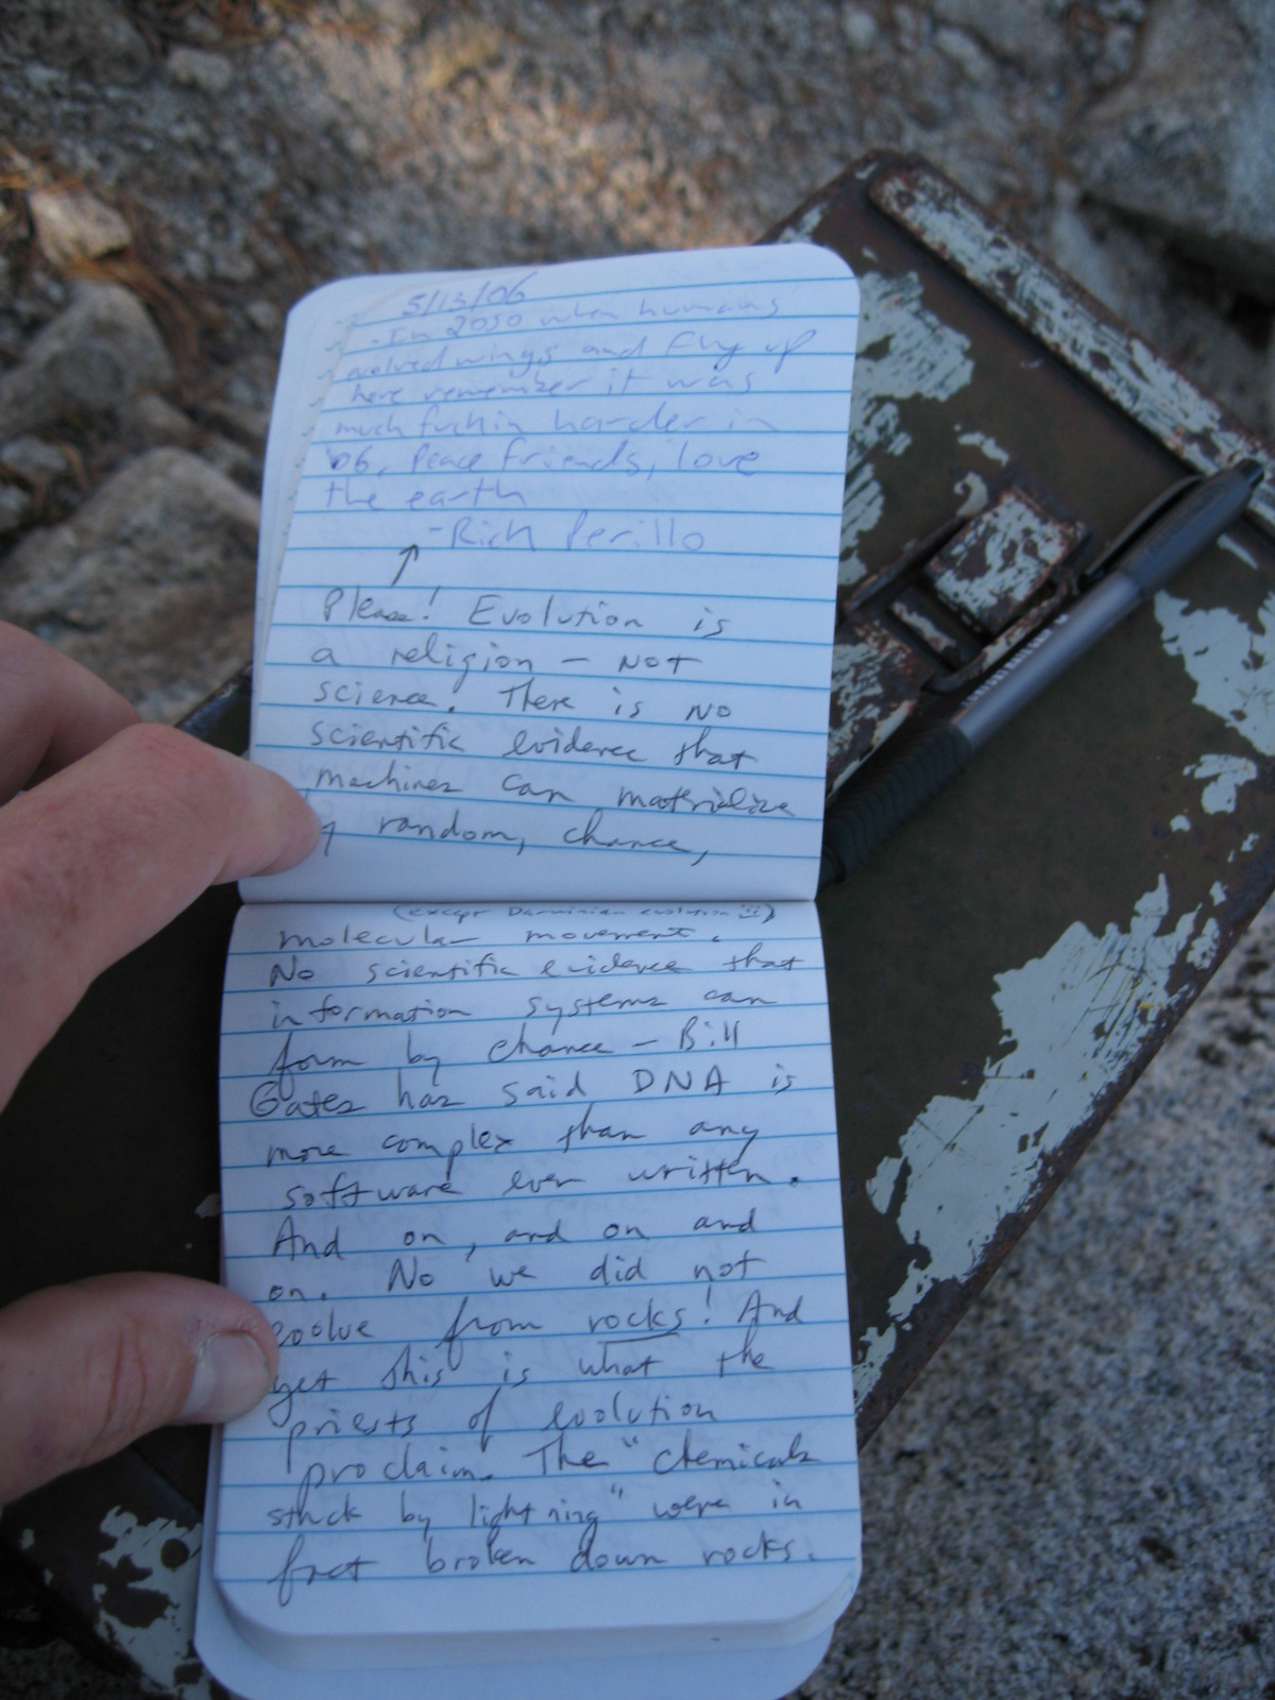 5/13/06
- In 2050 when humans
evolved wings and fly up
here remember it was
much fuckin harder in
'06. Peace friends, love
the earth
- Rich Perillo
↑
Please! Evolution is
a religion – NOT
science. There is NO
scientific evidence that
machines can materialize
by random, chance,
(except Darwinian evolution
molecular movement.
No scientific evidence that
information systems can
form by chance – Bill
Gates has said DNA is
more complex than any
software ever written.
And on, and on and
on. No we did not
evolve from rocks! And
yet this is what the
priests of evolution
proclaim. The "chemicals
stuck by lightning" were in
fact broken down rocks.